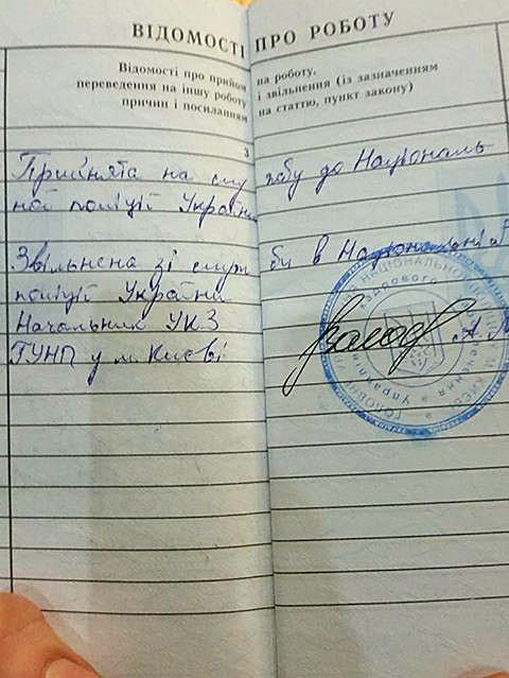 ВІДОМОСТІ ПРО РОБОТУ
Відомості про прийом на роботу,
переведення на іншу роботу і звільнення (із зазначенням
причин і посиланням на статтю, пункт закону)
3
Прийнята на службу до Національ
ної поліції України
Звільнена зі служби в Національній
поліції України
Начальник УКЗ
ГУНП у м. Києві